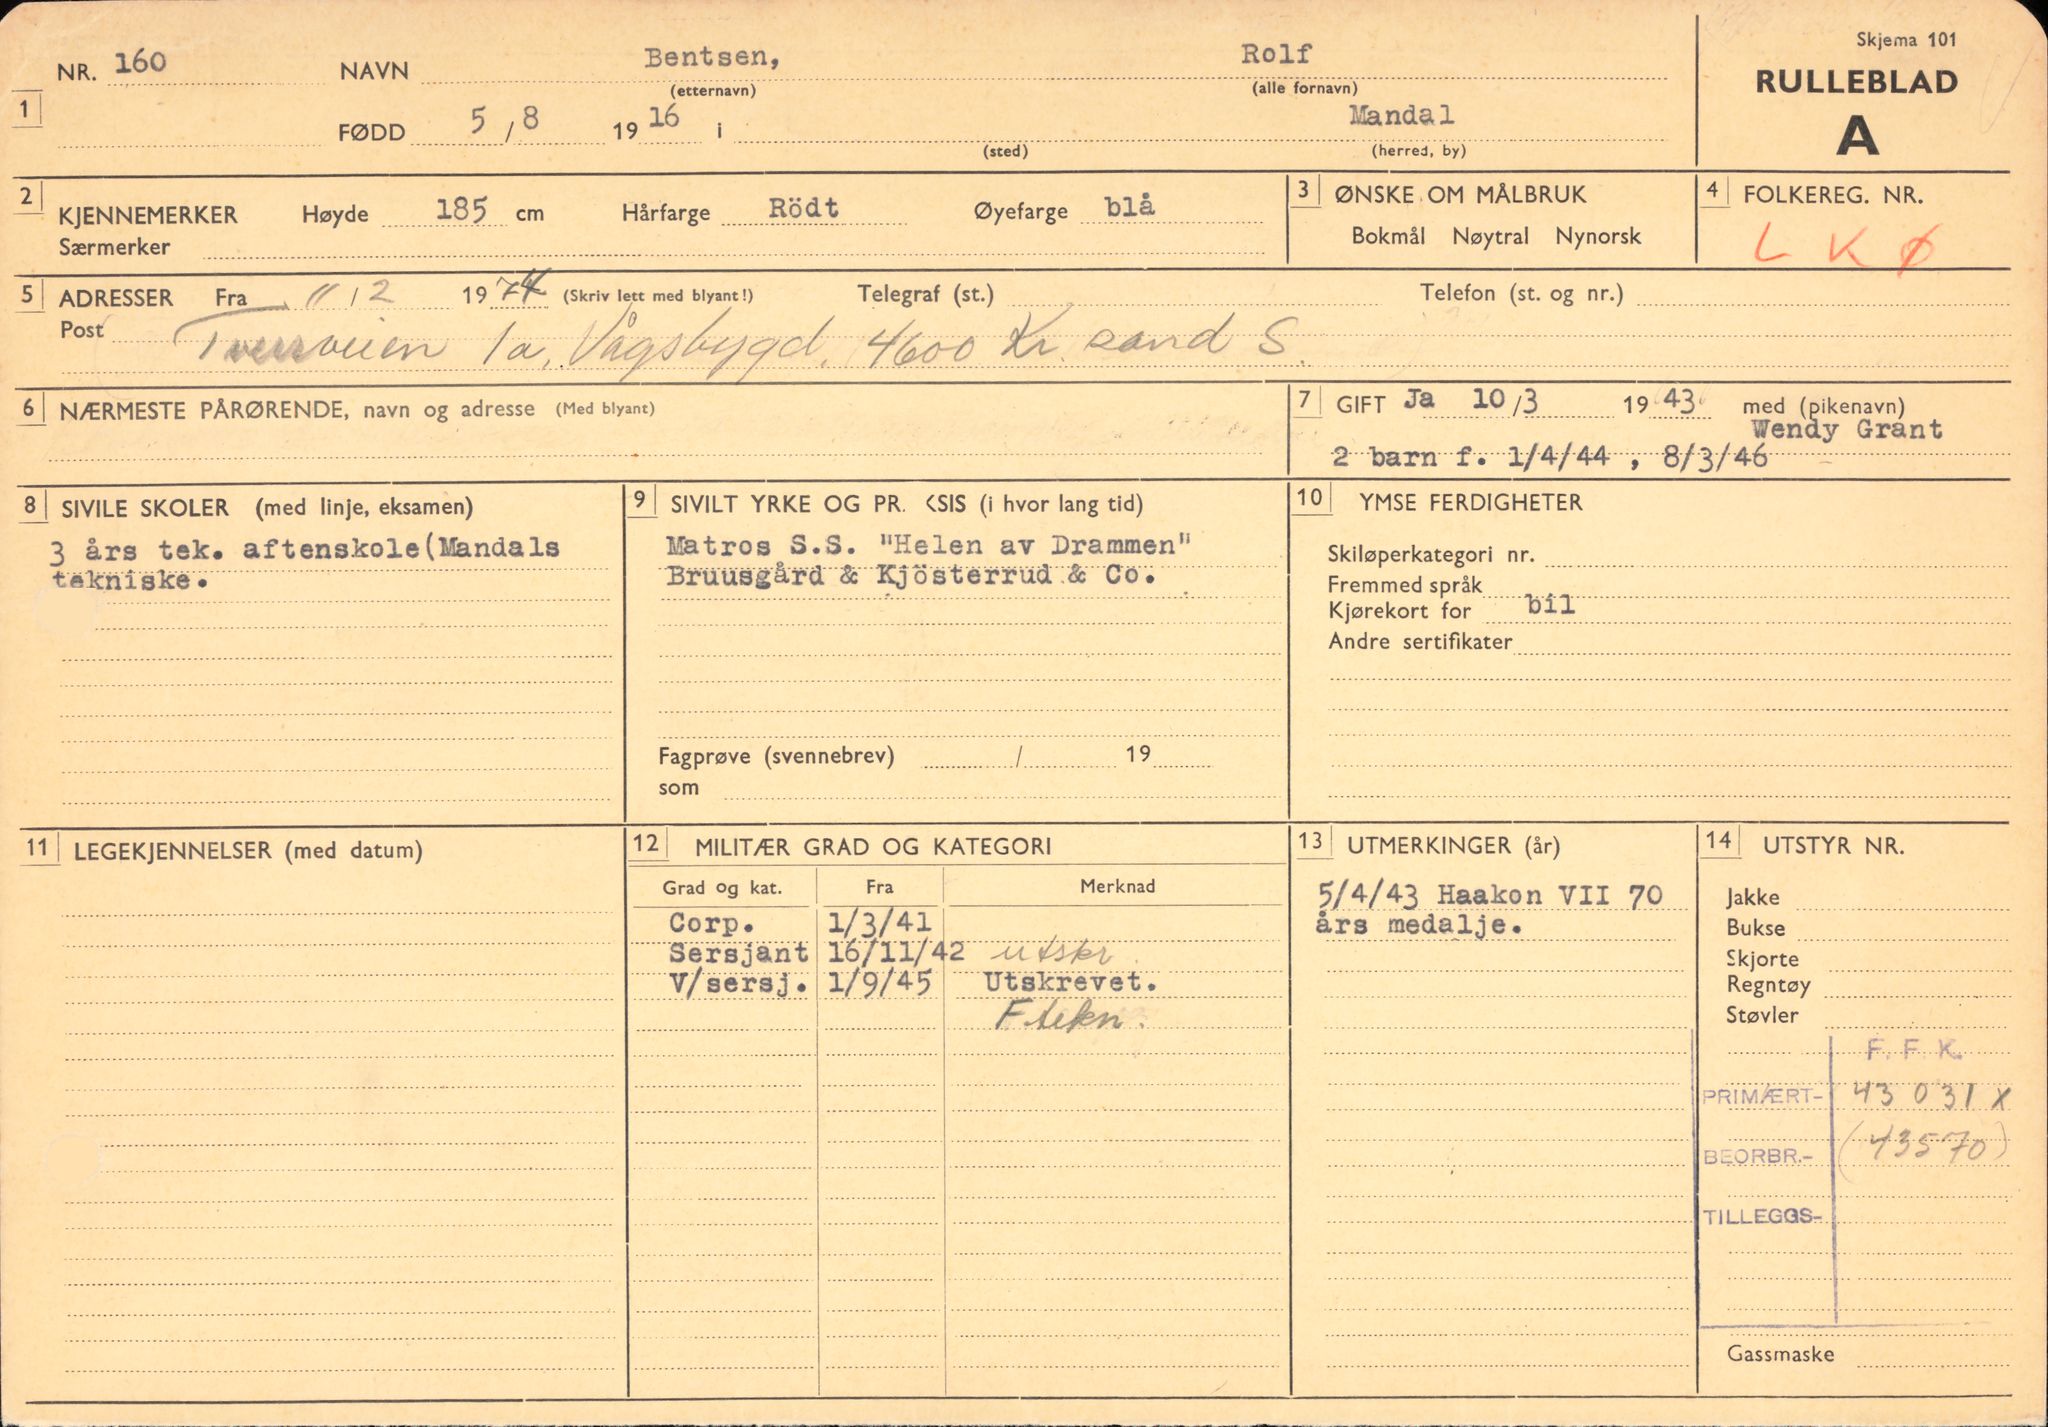 NR. 160 NAVN Bentsen, Rolf
(etternavn) (alle fornavn)
Skjema 101
RULLEBLAD
A
1
FØDD 5/8 1916 i Mandal
(sted) (herred, by)
2 KJENNEMERKER Høyde 185 cm Hårfarge Rödt Øyefarge blå
Særmerker
3 ØNSKE OM MÅLBRUK
Bokmål Nøytral Nynorsk
4 FOLKEREG. NR.
L K Ø
5 ADRESSER Fra 11/2 1974 (Skriv lett med blyant!) Telegraf (st.) Telefon (st. og nr.)
Post Tverrveien 1a, Vågsbygd, 4600 Kr. sand S.
6 NÆRMESTE PÅRØRENDE, navn og adresse (Med blyant)
7 GIFT Ja 10/3 1943 med (pikenavn)
Wendy Grant
2 barn f. 1/4/44 , 8/3/46
8 SIVILE SKOLER (med linje, eksamen)
3 års tek. aftenskole(Mandals
tekniske.
9 SIVILT YRKE OG PR. KSIS (i hvor lang tid)
Matros S.S. "Helen av Drammen"
Bruusgård & Kjösterrud & Co.
Fagprøve (svennebrev) / 19
som
10 YMSE FERDIGHETER
Skiløperkategori nr.
Fremmed språk
Kjørekort for bil
Andre sertifikater
11 LEGEKJENNELSER (med datum)
12 MILITÆR GRAD OG KATEGORI
Grad og kat. Fra Merknad
Corp. 1/3/41
Sersjant 16/11/42 utskr.
V/sersj. 1/9/45 Utskrevet.
F.tekn.
13 UTMERKINGER (år)
5/4/43 Haakon VII 70
års medalje.
14 UTSTYR NR.
Jakke
Bukse
Skjorte
Regntøy
Støvler
F. F. K.
PRIMÆRT- 43 031 x
BEORBR.- (43570)
TILLEGGS-
Gassmaske